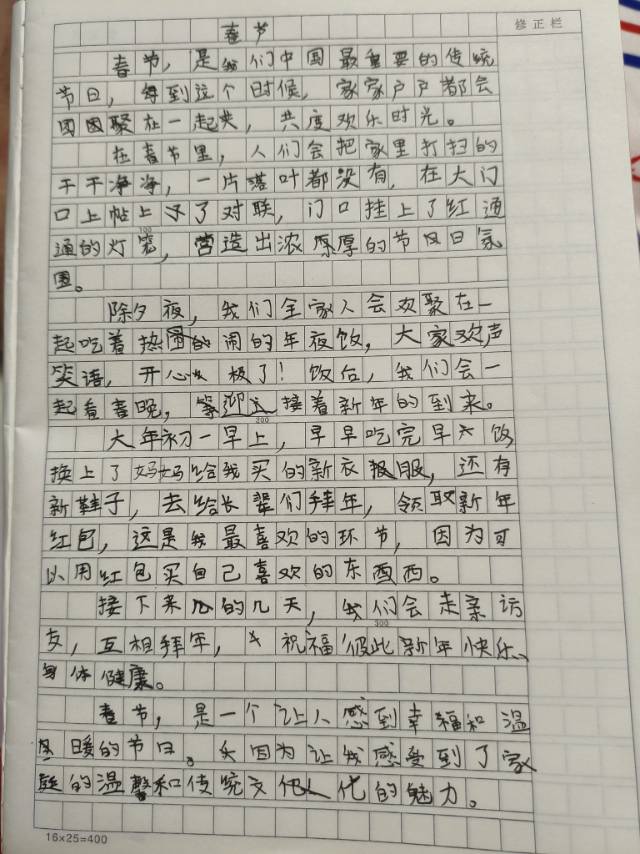 修正栏
春节
春节，是我们中国最重要的传统
节日，每到这个时候，家家户户都会
团团聚在一起，共度欢乐时光。
在春节里，人们会把家里打扫的
干干净净，一片落叶都没有，在大门
口上帖上了对联，门口挂上了红通
通的灯笼，营造出浓厚的节日氛
围。
除夕夜，我们全家人会欢聚在一
起吃着热闹的年夜饭，大家欢声
笑语，开心极了！饭后，我们会一
起看春晚，迎接着新年的到来。
大年初一早上，早早吃完早饭
换上了妈妈给我买的新衣服，还有
新鞋子，去给长辈们拜年，领取新年
红包，这是我最喜欢的环节，因为可
以用红包买自己喜欢的东西。
接下来的几天，我们会走亲访
友，互相拜年，祝福彼此新年快乐、
身体健康。
春节，是一个让人感到幸福和温
暖的节日。因为让我感受到了家
庭的温馨和传统文化的魅力。
100
200
300
16×25=400